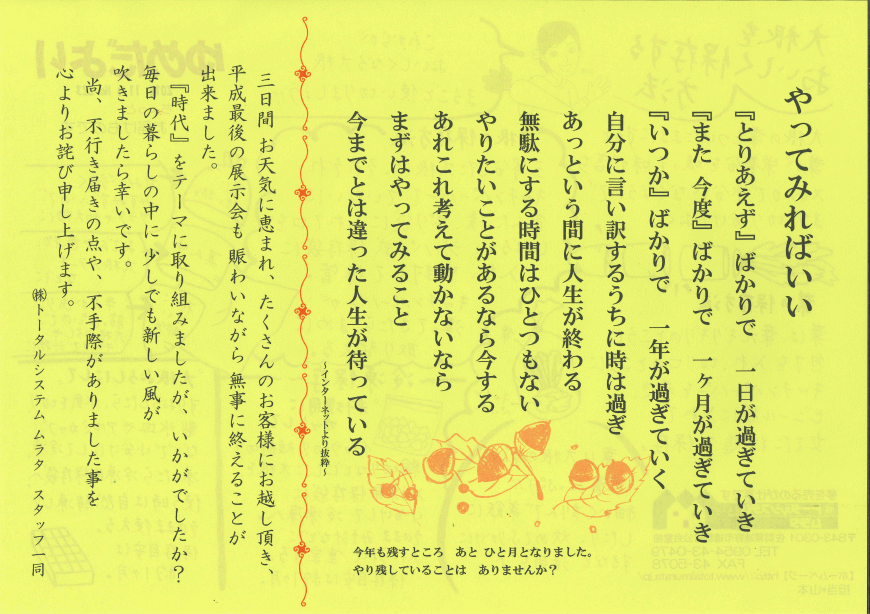 やってみればいい
『とりあえず』ばかりで　一日が過ぎていき
『また 今度』ばかりで　一ヶ月が過ぎていき
『いつか』ばかりで　一年が過ぎていく
自分に言い訳するうちに時は過ぎ
あっという間に人生が終わる
無駄にする時間はひとつもない
やりたいことがあるなら今する
あれこれ考えて動かないなら
まずはやってみること
今までとは違った人生が待っている
～インターネットより抜粋～
今年も残すところ　あと ひと月となりました。
やり残していることは　ありませんか？
三日間 お天気に恵まれ、たくさんのお客様にお越し頂き、
平成最後の展示会も 賑わいながら 無事に終えることが
出来ました。
『時代』をテーマに取り組みましたが、いかがでしたか？
毎日の暮らしの中に 少しでも新しい風が
吹きましたら幸いです。
尚、不行き届きの点や、不手際がありました事を
心よりお詫び申し上げます。
㈱トータルシステム ムラタ　スタッフ一同